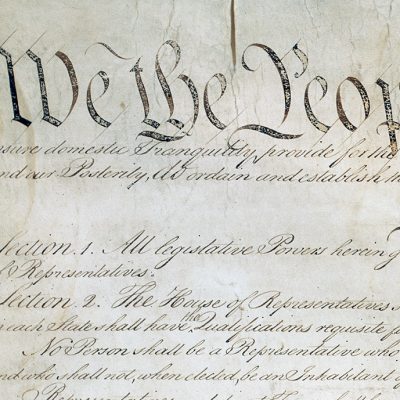 We the Peop
nsure domestic Tranquility, provide for the
nd our Posterity, do ordain and establish th
Section. 1. All legislative Powers herein g
f Representatives.
Section. 2. The House of Representatives s
n each State shall have the Qualifications requisite f
No Person shall be a Representative who
nd who shall not, when elected, be an Inhabitant of